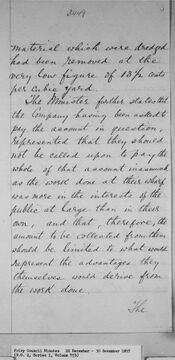 2449
material which were dredged
had been removed at the
very low figure of 13¾ cents
per cubic yard.
The Minister further states that
the Company having been asked to
pay the amount in question,
represented that they should
not be called upon to pay the
whole of that amount inasmuch
as the work done at their wharf
was more in the interests of the
public at large than in their
own, and that, therefore, the
amount to be collected from them
should be limited to what would
represent the advantages they
themselves would derive from
the work done.
The
Privy Council Minutes 22 December - 30 December 1897
(R.G. 2, Series 1, Volume 753)